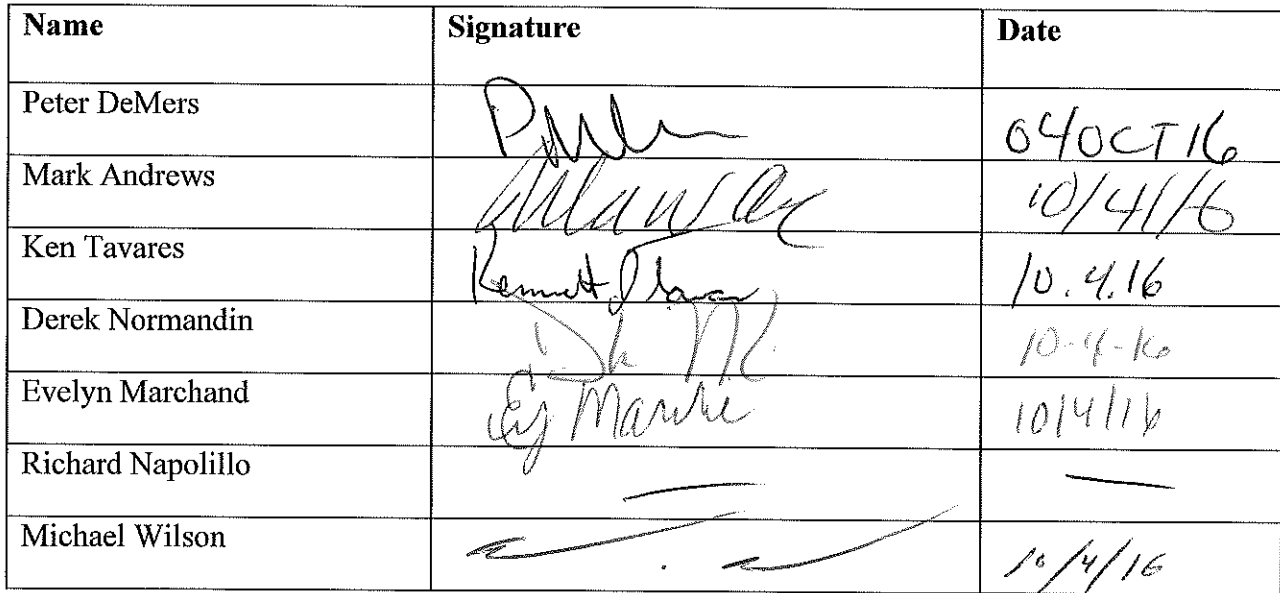 Name Signature Date
Peter DeMers 04OCT16
Mark Andrews 10/4/16
Ken Tavares 10.4.16
Derek Normandin 10-4-16
Evelyn Marchand 10/4/16
Richard Napolillo — —
Michael Wilson 10/4/16